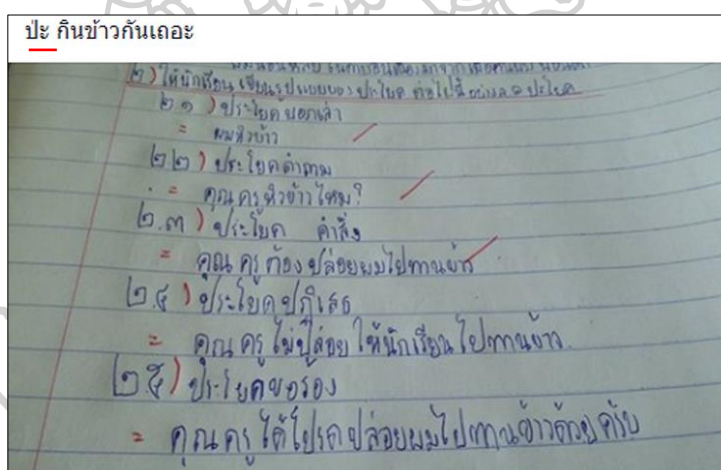 ป่ะ กินข้าวกันเถอะ
๒) ให้นักเรียน เขียนรูปแบบของ ประโยค ต่อไปนี้ อย่างละ ๑ ประโยค
๒.๑ ) ประโยคบอกเล่า
= ผมหิวข้าว
๒.๒ ) ประโยคคำถาม
= คุณครูหิวข้าวไหม?
๒.๓ ) ประโยค คำสั่ง
= คุณ ครู ต้อง ปล่อยผมไปทานข้าว
๒.๔ ) ประโยคปฏิเสธ
= คุณ ครู ไม่ปล่อย ให้นักเรียน ไปทานข้าว
๒.๕) ประโยคขอร้อง
= คุณครู ได้โปรดปล่อยผมไปทานข้าวด้วยครับ